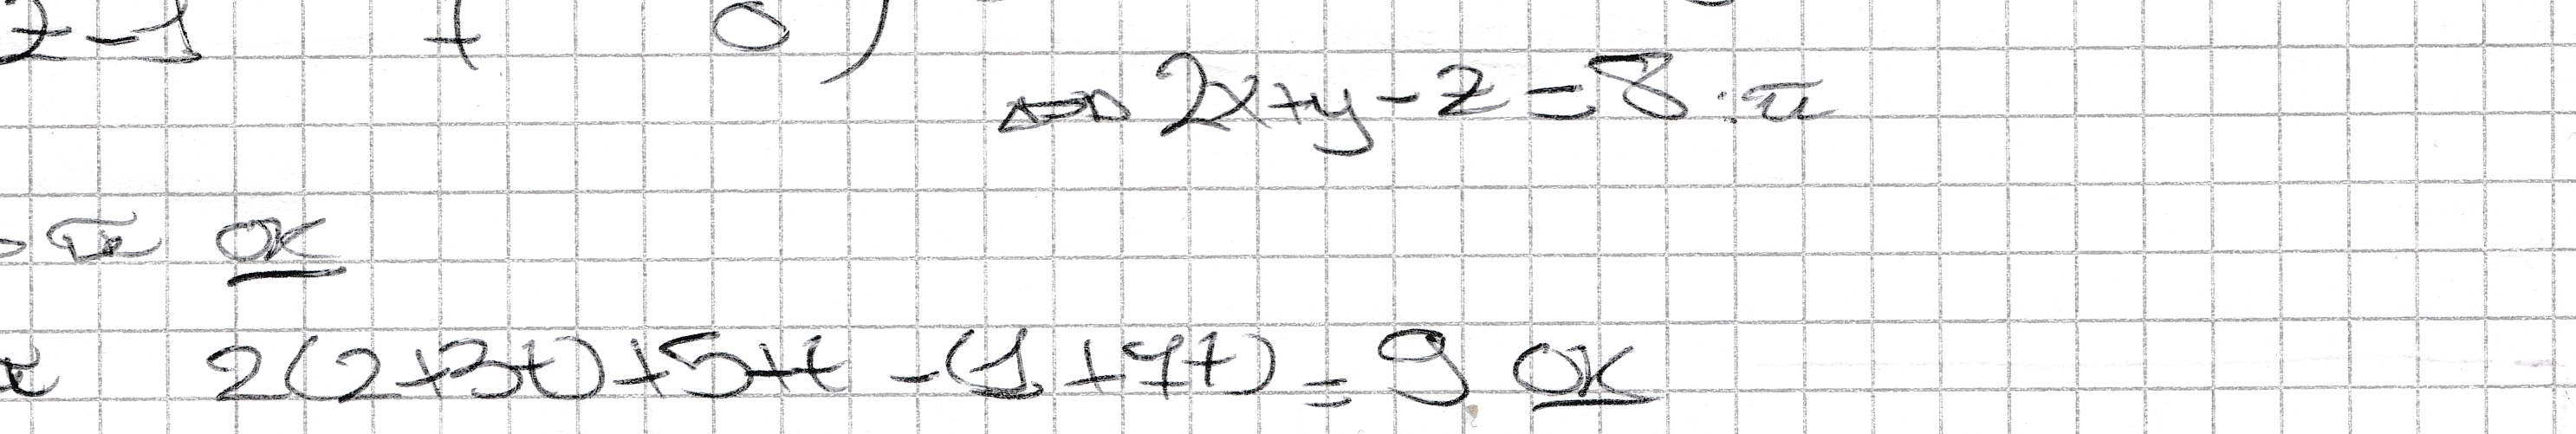 z-1 t 0 )
⇔ 2x+y-z=8 : π
π OK
π 2(2+3t)+5+t -(1+7t) = 9 OK